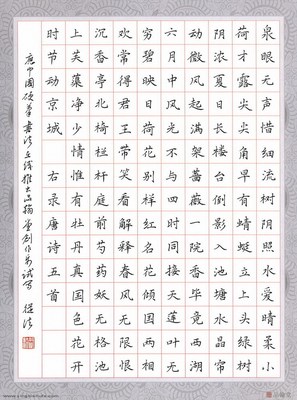 泉眼无声惜细流树阴照水爱晴柔小
荷才露尖尖角早有蜻蜓立上头绿树
阴浓夏日长楼台倒影入池塘水晶帘
动微风起满架蔷薇一院香毕竟西湖
六月中风光不与四时同接天莲叶无
穷碧映日荷花别样红名花倾国两相
欢常得君王带笑看解释春风无限恨
沉香亭北倚栏杆庭前芍药妖无格池
上芙蕖净少情惟有牡丹真国色花开
时节动京城 右录唐诗五首
书法在线推出品翰堂创作